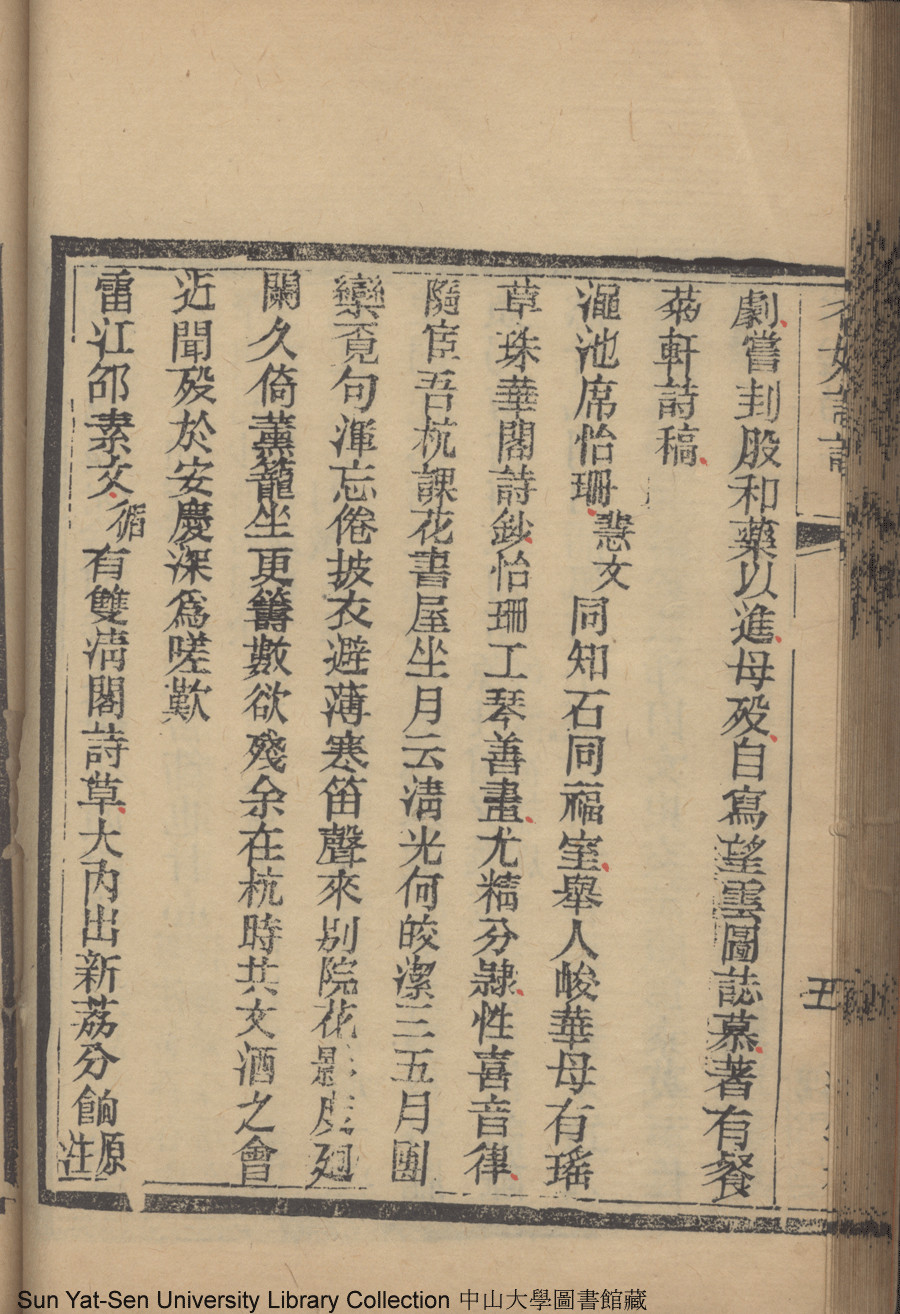 名媛詩話
五
劇嘗刲股和藥以進母歿自寫望雲圖誌慕著有餐
菊軒詩稿
澠池席怡珊慧文同知石同福室舉人峻華母有瑤
草珠華閣詩鈔怡珊工琴善畫尤精分隷性喜音律
隨宦吾杭課花書屋坐月云淸光何皎潔三五月團
欒覓句渾忘倦披衣避薄寒笛聲來別院花影度廻
闌久倚薰籠坐更籌數欲殘余在杭時共文酒之會
近聞歿於安慶深爲嗟歎
雷江邵素文循有雙淸閣詩草大内出新荔分餉原注
Sun Yat-Sen University Library Collection 中山大學圖書館藏